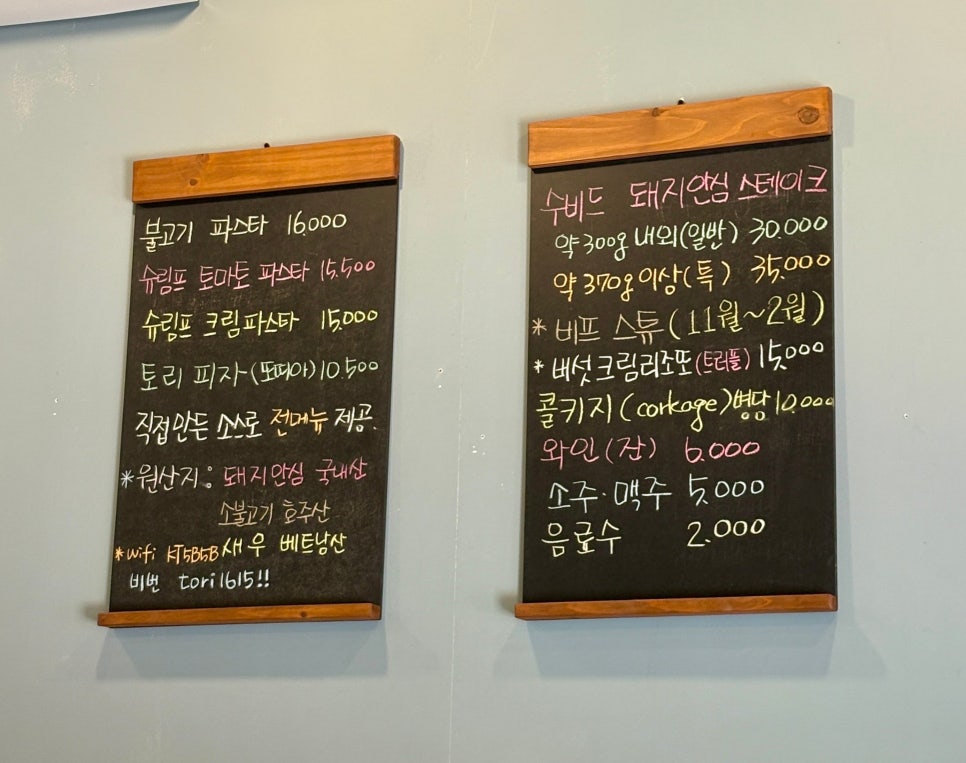 불고기 파스타 16.000
슈림프 토마토 파스타 15.500
슈림프 크림파스타 15.000
토리 피자(또띠아) 10.500
직접만든 소스로 전메뉴 제공.
*원산지: 돼지안심 국내산
소불고기 호주산
새우 베트남산
*wifi KT5B5B
비번 tori1615!!
수비드 돼지안심 스테이크
약 300g 내외(일반) 30.000
약 370g 이상(특) 35.000
* 비프 스튜 (11월~2월)
* 버섯크림리조또(트러플) 15,000
콜키지 (corkage) 병당 10.000
와인 (잔) 6.000
소주·맥주 5.000
음료수 2.000